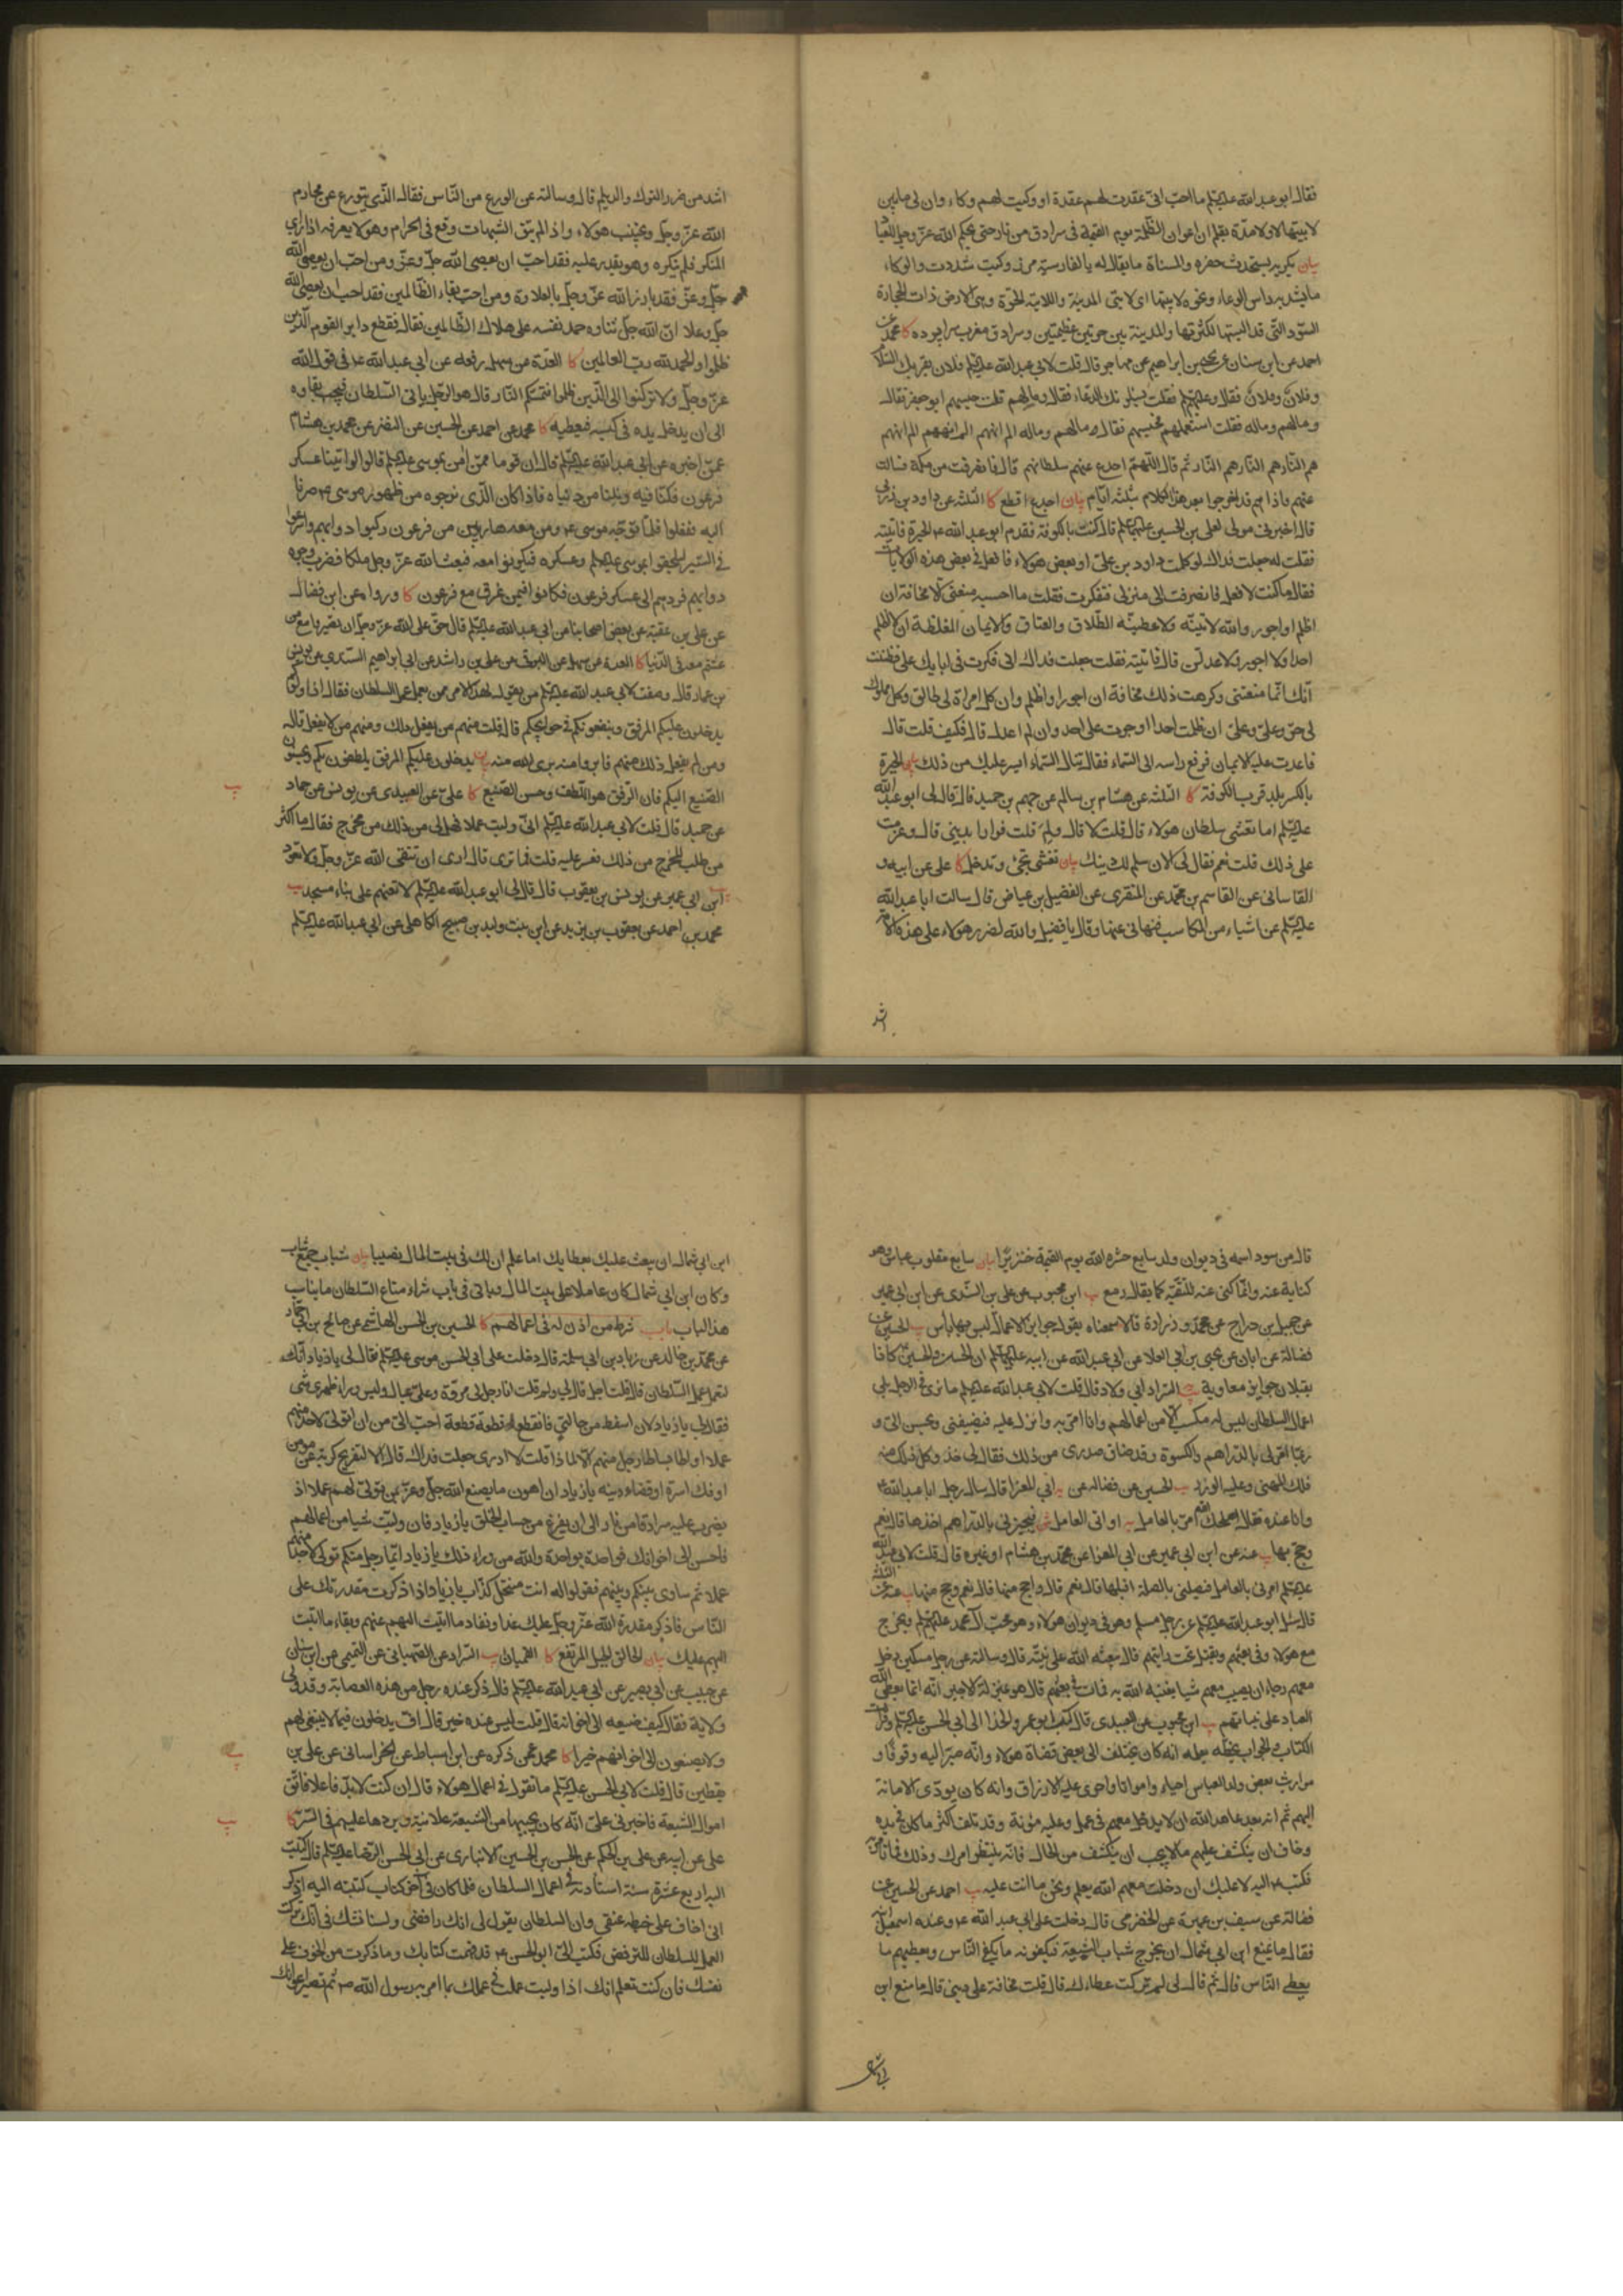 فقال ابو عبد الله عليه السلم ما احب انى عقدت لهم عقدة او وكيت لهم وكاء وان لى ما بين
لابيتها لا ولا مدة بقلم ان اعوان الظلمة يوم القيمة فى سرادق من نار حتى يحكم الله عز وجل بين العباد
بيان يكريه يستحدث حفره والمسناة ما يقال له بالفارسية مرز وكيت شددت والوكاء
ما يشد به راس الوعاء ونحوه لابيتها اى لابتى المدينة واللابة الحرة وهى الارض ذات الحجارة
السود التى قد البستها لكثرتها والمدينة بين حرتين عظيمتين وسرادق معرب سراپرده كا محمد عن
احمد عن ابن سنان عن يحيى بن ابراهيم عن مهاجر قال قلت لابى عبد الله عليه السلم فلان يقرئك السلام
وفلان وفلان فقال وعليهم السلم فقلت يسئلونك الدعاء فقال وما لهم قلت حبسهم ابو جعفر فقال
وما لهم وما له فقلت استعملهم فحبسهم فقال وما لهم وما له الم انههم الم انههم الم انههم
هم النار هم النار هم النار ثم قال اللهم اجدع عنهم سلطانهم قال فانصرفت من مكة فسالت
عنهم فاذا هم قد اخرجوا بعد هذا الكلام بثلثة ايام بيان اجدع اقطع كا الثلثة عن داود بن زربى
قال اخبرنى مولى لعلى بن الحسين عليهما السلم قال كنت بالكوفة فقدم ابو عبد الله ع الحيرة فاتيته
فقلت له جعلت فداك لو كلمت داود بن على او بعض هولاء فادخل فى بعض هذه الولايات
فقال ما كنت لافعل فانصرفت الى منزلى فتفكرت فقلت ما احسبه منعنى الا مخافة ان
اظلم او اجور والله لاتينه ولاعطينه الطلاق والعتاق والايمان المغلظة ان لا اظلم
احدا ولا اجور ولاعدلن قال فاتيته فقلت جعلت فداك انى فكرت فى ابائك على فظننت
انك انما منعتنى وكرهت ذلك مخافة ان اجور او اظلم وان كل امراة لى طالق وكل مملوك
لى حر وعلى وعلى ان ظلمت احدا او جرت على احد وان لم اعدل قال فكيف قلت قال
فاعدت عليه الايمان فرفع راسه الى السماء فقال تنال السماء ايسر عليك من ذلك بيان الحيرة
بالكسر بلد قرب الكوفة كا الثلثة عن هشام بن سالم عن جهم بن حميد قال قال لى ابو عبد الله
عليه السلم اما تغشى سلطان هولاء قال قلت لا قال ولم قلت فرارا بدينى قال وعزمت
على ذلك قلت نعم فقال لى الان سلم لك دينك بيان تغشى تجئ وتدخل كا على عن ابيه و
القاسانى عن القاسم بن محمد عن المنقرى عن الفضيل بن عياض قال سالت ابا عبد الله
عليه السلم عن اشياء من المكاسب فنهانى عنها وقال يا فضيل والله لضرر هولاء على هذه الامة
اشد
اشد من ضرر الترك والديلم قال وسالته عن الورع من الناس فقال الذى يتورع عن محارم
الله عز وجل ويجتنب هولاء واذا لم يتق الشبهات وقع فى الحرام وهو لا يعرفه اذا راى
المنكر فلم ينكره وهو يقدر عليه فقد احب ان يعصى الله جل وعز ومن احب ان يعصى الله
جل وعز فقد بارز الله عز وجل بالعداوة ومن احب بقاء الظالمين فقد احب ان يعصى الله
جل وعلا ان الله جل ثناوه حمد نفسه على هلاك الظالمين فقال فقطع دابر القوم الذين
ظلموا والحمد لله رب العالمين كا العدة من سهل رفعه عن ابى عبد الله ع فى قول الله
عز وجل ولا تركنوا الى الذين ظلموا فتمسكم النار قال هو الرجل ياتى السلطان فيحب بقاوه
الى ان يدخل يده فى كيسه فيعطيه كا محمد عن احمد عن الحسين عن النضر عن محمد بن هشام
عمن اخبره عن ابى عبد الله عليه السلم قال ان قوما ممن امن بموسى عليه السلم قالوا لو اتينا عسكر
فرعون فكنا فيه ونلنا من دنياه فاذا كان الذى نرجوه من ظهور موسى ع صرنا
اليه ففعلوا فلما توجه موسى ع ومن معه هاربين من فرعون ركبوا دوابهم واسرعوا
فى السير ليلحقوا بموسى عليه السلم وعسكره فيكونوا معه فبعث الله عز وجل ملكا فضرب وجوه
دوابهم فردهم الى عسكر فرعون فكانوا فيمن غرق مع فرعون كا ورواه عن ابن فضال
عن على بن عقبة عن بعض اصحابنا عن ابى عبد الله عليه السلم قال حق على الله عز وجل ان تصيروا مع من
عشتم معه فى الدنيا كا العدة عن سهل عن البرقى عن على بن راشد عن ابى ابراهيم السندى عن يونس
بن عمار قال وصفت لابى عبد الله عليه السلم من يقول بهذا الامر ممن يعمل عمل السلطان فقال اذا ولوكم
يدخلون عليكم المرفق وينفعونكم فى حوائجكم قال قلت منهم من يفعل ذلك ومنهم من لا يفعل قال
ومن لم يفعل ذلك منهم فابرءوا منه برئ الله منه بيان يدخلون عليكم المرفق يلطفون بكم ويحسنون
الصنيع اليكم فان الرفق هو اللطف وحسن الصنيع كا على عن العبيدى عن يونس عن حماد
عن حميد قال قلت لابى عبد الله عليه السلم انى وليت عملا فهل لى من ذلك من مخرج فقال ما اكثر
من طلب المخرج من ذلك فعسر عليه قلت فما ترى قال ارى ان تتقى الله عز وجل ولا تعود
ابن ابى عمير عن يونس بن يعقوب قال قال لى ابو عبد الله عليه السلم لا تعنهم على بناء مسجد يب
محمد بن احمد عن يعقوب بن يزيد عن ابن بنت وليد بن صبيح الكاهلى عن ابى عبد الله عليه السلم
قال من سود اسمه فى ديوان ولد سابع حشره الله يوم القيمة خنزيرا بيان سابع مقلوب عباس وهو
كناية عنه وانما كنى عنه للتقية كما يقال رمع يب ابن محبوب عن على بن السندى عن ابن ابى عمير
عن جميل بن دراج عن محمد وزرارة قالا سمعناه يقول جوايز العمال ليس بها باس يب الحسين عن
فضالة عن ابان عن يحيى بن ابى العلا عن ابى عبد الله عن ابيه عليهما السلم ان الحسن والحسين ع كانا
يقبلان جوايز معاوية يب السراد ابى ولاد قال قلت لابى عبد الله عليه السلم ما ترى فى الرجل يلى
اعمال السلطان ليس له مكسب الا من اعمالهم وانا امر به وانزل عليه فيضيفنى ويحسن الى و
ربما امر لى بالدراهم والكسوة وقد ضاق صدرى من ذلك فقال لى خذ وكل ذلك منه
فلك المهنى وعليه الوزر يب الحسين عن فضاله عن ابى المعزا قال سال رجل ابا عبد الله ع
وانا عنده فقال اصلحك الله امر بالعامل او اتى العامل فيجيزنى بالدراهم اخذها قال نعم
وحج بها يب عنه عن ابن ابى عمير عن ابى المعزا عن محمد بن هشام او غيره قال قلت لابى عبد الله
عليه السلم امر بالعامل فيصلنى بالصلة اقبلها قال نعم قال واحج منها قال نعم وحج منها يب عنه عن الثلثة
قال سئل ابو عبد الله عليه السلم عن رجل مسلم وهو فى ديوان هولاء وهو يحب ال محمد عليهم السلم ويخرج
مع هولاء وفى بعثهم ويقتل تحت رايتهم قال يبعثه الله على نيته قال وسالته عن رجل مسكين دخل
معهم رجاء ان يصيب معهم شيئا يغنيه الله به فمات فى بعثهم قال هو بمنزلة الاجير انه انما يعطى الله
العباد على نياتهم يب ابن محبوب عن العبيدى قال كتب ابو عمرو الحذا الى ابى الحسن عليه السلم وقرات
الكتاب والجواب بخطه يعلمه انه كان يختلف الى بعض قضاة هولاء وانه صير اليه وقوفا و
مواريث بعض ولد العباس احياء وامواتا واجرى عليه الارزاق وانه كان يودى الامانة
اليهم ثم انه بعد عاهد الله ان لا يدخل معهم فى عمل وعليه مؤنة وقد تلف اكثر ما كان فى يده
وخاف ان ينكشف عليهم ما لا يحب ان ينكشف من الحال فانه ينتظر امرك فى ذلك فما تامر
فكتب ع اليه لا عليك ان دخلت معهم الله يعلم ونحن ما انت عليه يب احمد عن الحسين عن
فضالة عن سيف بن عميرة عن الحضرمى قال دخلت على ابى عبد الله ع وعنده اسمعيل ابنه
فقال ما يمنع ابن ابى شمال ان يخرج شباب الشيعة فيكفونه ما يكفى الناس ويعطيهم ما
يعطى الناس قال ثم قال لى لم تركت عطاءك قال قلت مخافة على دينى قال ما منع ابن
ابى شمال
ابن ابى شمال ان يبعث عليك بعطايك اما علم ان لك فى بيت المال نصيبا بيان شباب جمع شاب
وكان ابن ابى شمال كان عاملا على بيت المال وياتى فى باب شراء متاع السلطان ما يناسب
هذا الباب باب شرط من اذن له فى اعمالهم كا الحسين بن الحسن الهاشمى عن صالح بن ابى حماد
عن محمد بن خالد عن زياد بن ابى سلمة قال دخلت على ابى الحسن موسى عليه السلم فقال لى يا زياد انك
لتعمل عمل السلطان قال قلت اجل قال لى ولم قلت انا رجل لى مروة وعلى عيال وليس وراء ظهرى شئ
فقال لى يا زياد لان اسقط من حالق فانقطع قطعة قطعة احب الى من ان اتولى لاحد منهم
عملا او اطا بساط رجل منهم الا لماذا قلت لا ادرى جعلت فداك قال الا لتفريج كربة عن مومن
او فك اسره او قضاء دينه يا زياد ان اهون ما يصنع الله جل وعز بمن تولى لهم عملا ان
يضرب عليه سرادقا من نار الى ان يفرغ من حساب الخلق يا زياد فان وليت شيئا من اعمالهم
فاحسن الى اخوانك فواحدة بواحدة والله من وراء ذلك يا زياد ايما رجل منكم تولى لاحد منهم
عملا ثم ساوى بينكم وبينهم فقولوا له انت منتحل كذاب يا زياد اذا ذكرت مقدرتك على
الناس فاذكر مقدرة الله عز وجل عليك غدا ونفاد ما اتيت اليهم عنهم وبقاء ما اتيت
اليهم عليك بيان الحالق الجبل المرتفع كا القميان يب السراد عن الصهبانى عن التميمى عن ابن سنان
عن حبيب عن ابى بصير عن ابى عبد الله عليه السلم قال ذكر عنده رجل من هذه العصابة وقد ولى
ولاية فقال كيف صنيعه الى اخوانه قال قلت ليس عنده خير قال اف يدخلون فيما لا ينبغى لهم
ولا يصنعون الى اخوانهم خيرا كا محمد عمن ذكره عن ابن اسباط عن الخراسانى عن على بن
يقطين قال قلت لابى الحسن عليه السلم ما تقول فى اعمال هولاء قال ان كنت لا بد فاعلا فاتق
اموال الشيعة فاخبرنى على انه كان يجبيها من الشيعة علانية ويردها عليهم فى السر كا
على عن ابيه عن على بن الحكم عن الحسن بن الحسين الانبارى عن ابى الحسن الرضا عليه السلم قال كتبت
اليه اربع عشرة سنة استاذنه فى اعمال السلطان فلما كان فى اخر كتاب كتبته اليه اذكر
انى اخاف على خبط عنقى وان السلطان يقول لى انك رافضى ولسنا نشك فى انك تركت
العمل للسلطان للترفض فكتب الى ابو الحسن ع قد فهمت كتابك وما ذكرت من الخوف على
نفسك فان كنت تعلم انك اذا وليت عملت فى عملك بما امر به رسول الله ص ثم تصير اعوانك